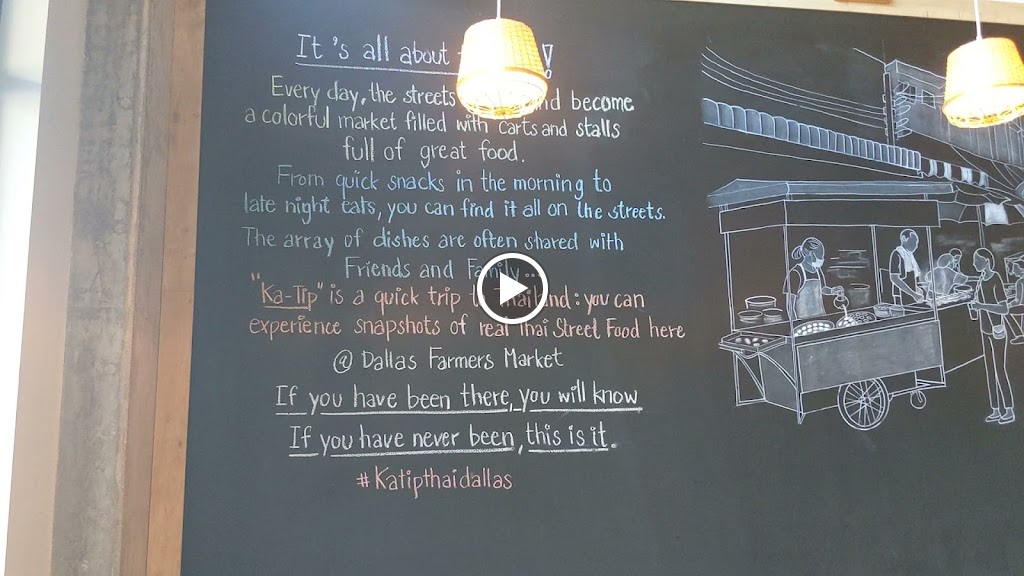 It's all about !
Every day, the streets and become
a colorful market filled with carts and stalls
full of great food.
From quick snacks in the morning to
late night eats, you can find it all on the streets.
The array of dishes are often shared with
Friends and Family...
"Ka-Tip" is a quick trip to Thailand: you can
experience snapshots of real Thai Street Food here
@ Dallas Farmers Market
If you have been there, you will know
If you have never been, this is it.
#Katipthaidallas